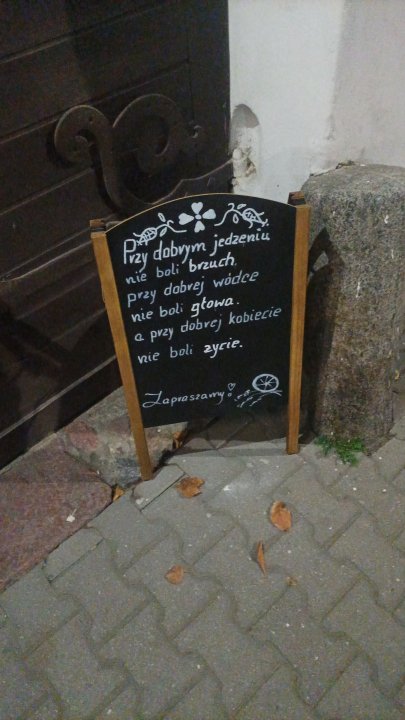 Przy dobrym jedzeniu
nie boli brzuch,
przy dobrej wódce
nie boli głowa.
a przy dobrej kobiecie
nie boli zycie.
Zapraszamy!